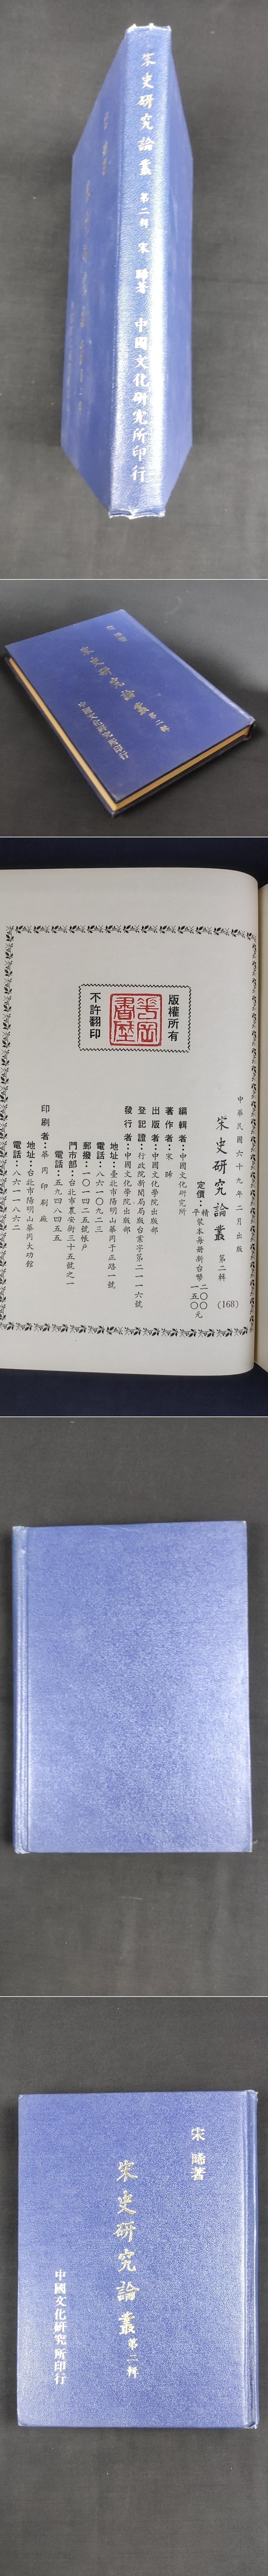 宋史研究論叢 第二輯 宋晞著 中國文化研究所印行
宋史研究論叢 第二輯
中國文化研究所印行
版權所有
華岡書歷
不許翻印
中華民國六十九年二月出版
宋史研究論叢 第二輯 (168)
定價：精裝本每冊新台幣二〇〇元
平 一五〇
編輯者：中國文化研究所
著作者：宋晞
出版者：中國文化學院出版部
登記證：行政院新聞局局版台業字第二一一六號
發行者：中國文化學院出版部
地址：臺北市陽明山華岡于正路一號
電話：八六一〇九二三
郵撥：一〇一四二五號帳戶
門市部：台北市農安街三十五號之一
電話：五九四八四五五
印刷者：華岡印刷廠
地址：台北市陽明山華岡大功館
電話：八六一一八六二
宋晞著
宋史研究論叢 第二輯
中國文化研究所印行